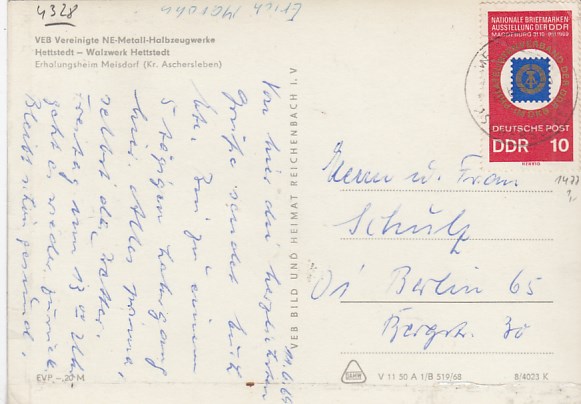 4328
Erich
VEB Vereinigte NE-Metall-Halbzeugwerke
Hettstedt — Walzwerk Hettstedt
Erholungsheim Meisdorf (Kr. Aschersleben)
Von hier die herzlichsten
Grüße sendet Euch
Bin zu einem
5 tägigen Lehrgang
hier. Alles prima,
selbst das Wetter.
Freitag um 13 00 Uhr
geht es wieder zurück.
Bleibt schön gesund.
EVP –.20 M
VEB BILD UND HEIMAT REICHENBACH I. V
NATIONALE BRIEFMARKEN
AUSSTELLUNG DER DDR
MAGDEBURG 31.10.-9.11.1969
DEUTSCHE POST
DDR 10
1477
Herrn u. Frau
Schulz
Berlin 65
Bergstr. 30
V 11 50 A 1/B 519/68
8/4023 K